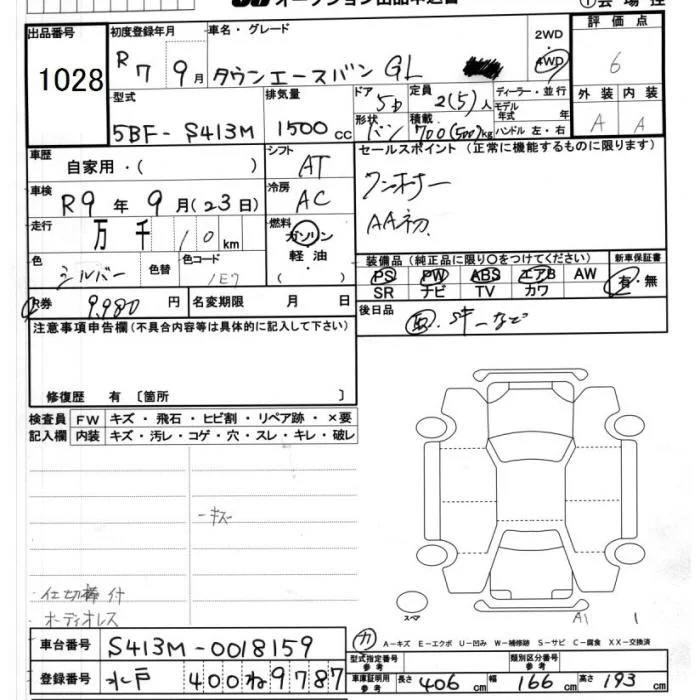 オークション出品申込書
出品番号
1028
初度登録年月
R7 9月
車名・グレード
タウンエースバン GL
2WD
4WD
評価点
6
型式
5BF-S413M
排気量
1500cc
ドア
5D
形状
バン
定員
2(5)人
積載
700(500)kg
ディーラー・並行
モデル年式 年
ハンドル 左・右
外装 内装
A A
車歴
自家用・( )
シフト
AT
セールスポイント(正常に機能するものに限ります)
ワンオーナー
AA初
車検
R9年 9月(23日)
冷房
AC
走行
万 千 10km
燃料
ガソリン・軽油・( )
色
シルバー
色替
色コード
1E7
装備品(純正品に限り○をつけてください)
PS PW ABS エアB AW
SR ナビ TV カワ
新車保証書
有・無
R券
9,980円
名変期限 月 日
後日品
注意事項申告欄(不具合内容等は具体的に記入して下さい)
修復歴 有〔箇所 〕
検査員記入欄
FW キズ・飛石・ヒビ割・リペア跡・×要
内装 キズ・汚レ・コゲ・穴・スレ・キレ・破レ
キズ
仕切棒付
オーディオレス
スペア
A1
1
車台番号
S413M-0018159
A-キズ E-エクボ U-凹み W-補修跡 S-サビ C-腐食 XX-交換済
登録番号
水戸 400 ね 9787
型式指定番号 参考
類別区分番号 参考
車庫証明用 参考
長さ 406cm 幅 166cm 高さ 193cm